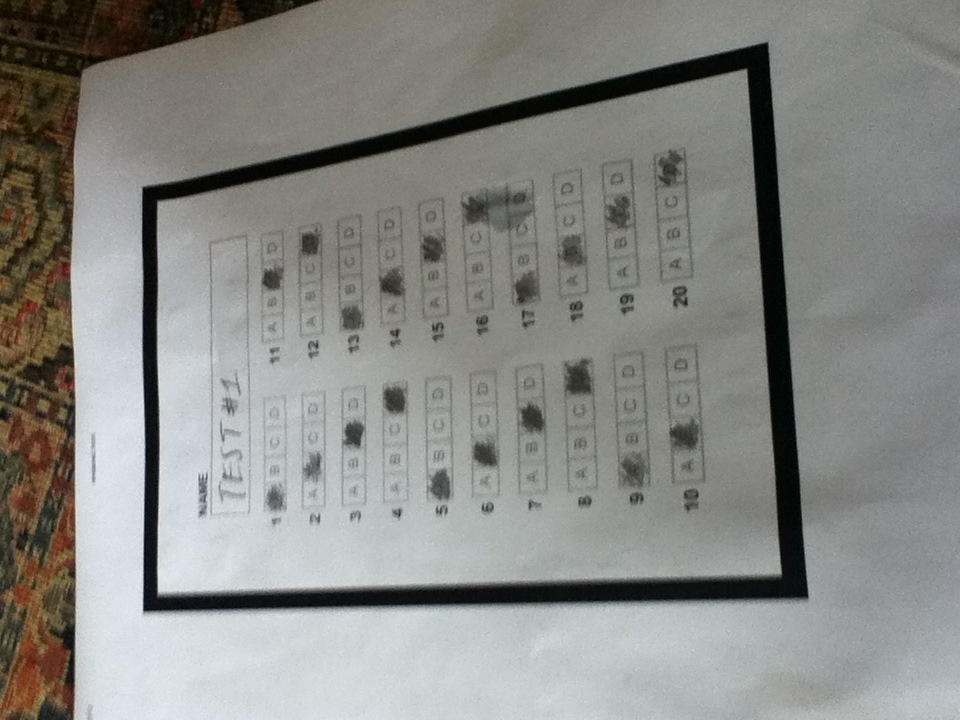 NAME
TEST #1
1 B C D
2 A C D
3 A B D
4 A B C
5 B C D
6 A C D
7 A B D
8 A B C
9 B C D
10 A C D
11 A B D
12 A B C
13 B C D
14 A C D
15 A B D
16 A B C
17 B C D
18 A B C D
19 A B D
20 A B C